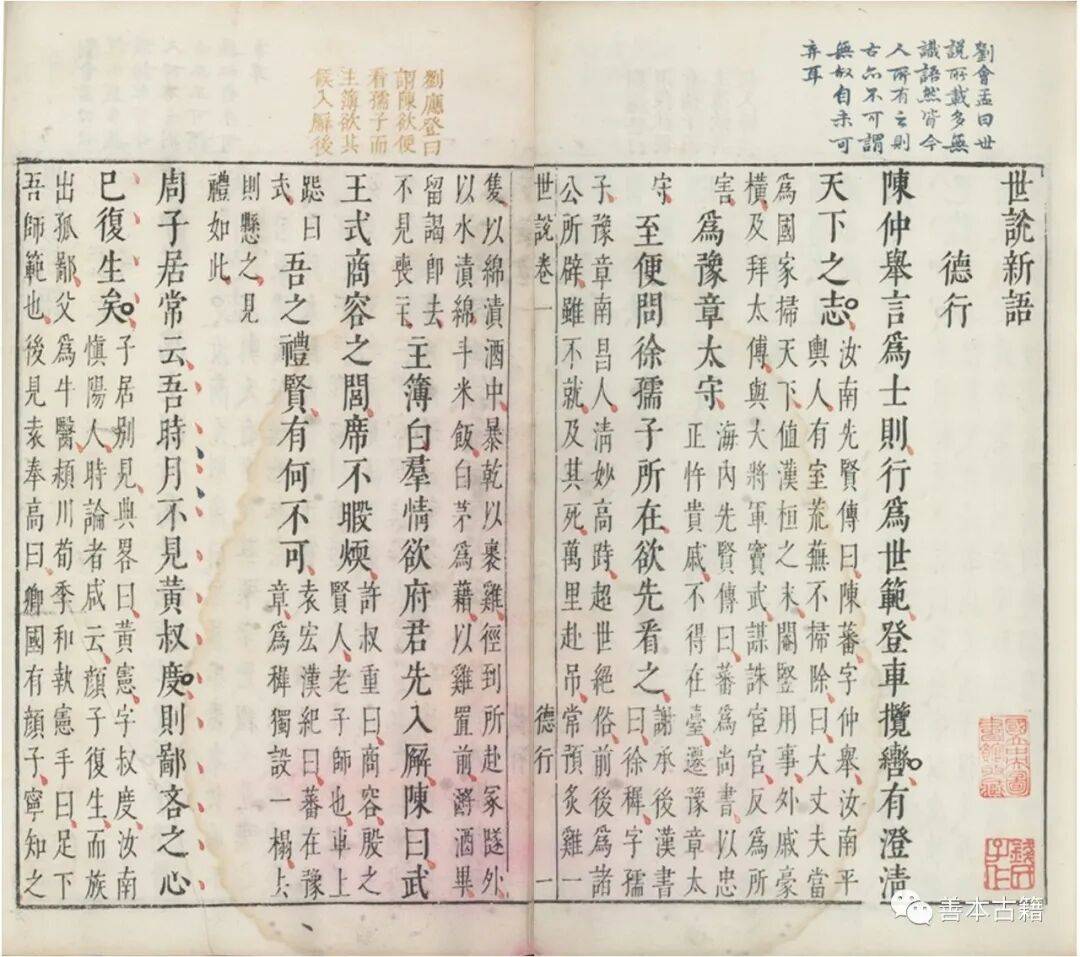 劉會孟曰世
說所載多無
識語然皆今
人所有言則
古亦不可謂
無奴自未可
弃耳
世說新語
德行
陳仲舉言爲士則行爲世範登車攬轡有澄清
天下之志汝南先賢傳曰陳蕃字仲舉汝南平
輿人有室荒蕪不掃除曰大丈夫當
爲國家掃天下值漢桓之末閹豎用事外戚豪
橫及拜太傅與大將軍竇武謀誅宦官反爲所
害爲豫章太守海內先賢傳曰蕃爲尚書以忠
正忤貴戚不得在臺遷豫章太
守至便問徐孺子所在欲先看之謝承後漢書
曰徐穉字孺
子豫章南昌人清妙高跱超世絕俗前後爲諸
公所辟雖不就及其死萬里赴吊常預炙雞一
世說卷一
德行
一
劉應登曰
謂陳欲便
看孺子而
主簿欲其
候入廨後
隻以綿漬酒中暴乾以裹雞徑到所赴冢隧外
以水漬綿斗米飯白茅爲藉以雞置前酹酒畢
留謁即去
不見喪主主簿白羣情欲府君先入廨陳曰武
王式商容之閭席不暇煗許叔重曰商容殷之
賢人老子師也車上
跽曰
式吾之禮賢有何不可袁宏漢紀曰蕃在豫
章爲穉獨設一榻去
則懸之見
禮如此
周子居常云吾時月不見黃叔度則鄙吝之心
已復生矣子居別見典畧曰黃憲字叔度汝南
慎陽人時論者咸云顏子復生而族
出孤鄙父爲牛醫潁川荀季和執憲手曰足下
吾師範也後見袁奉高曰卿國有顏子寧知之
善本古籍